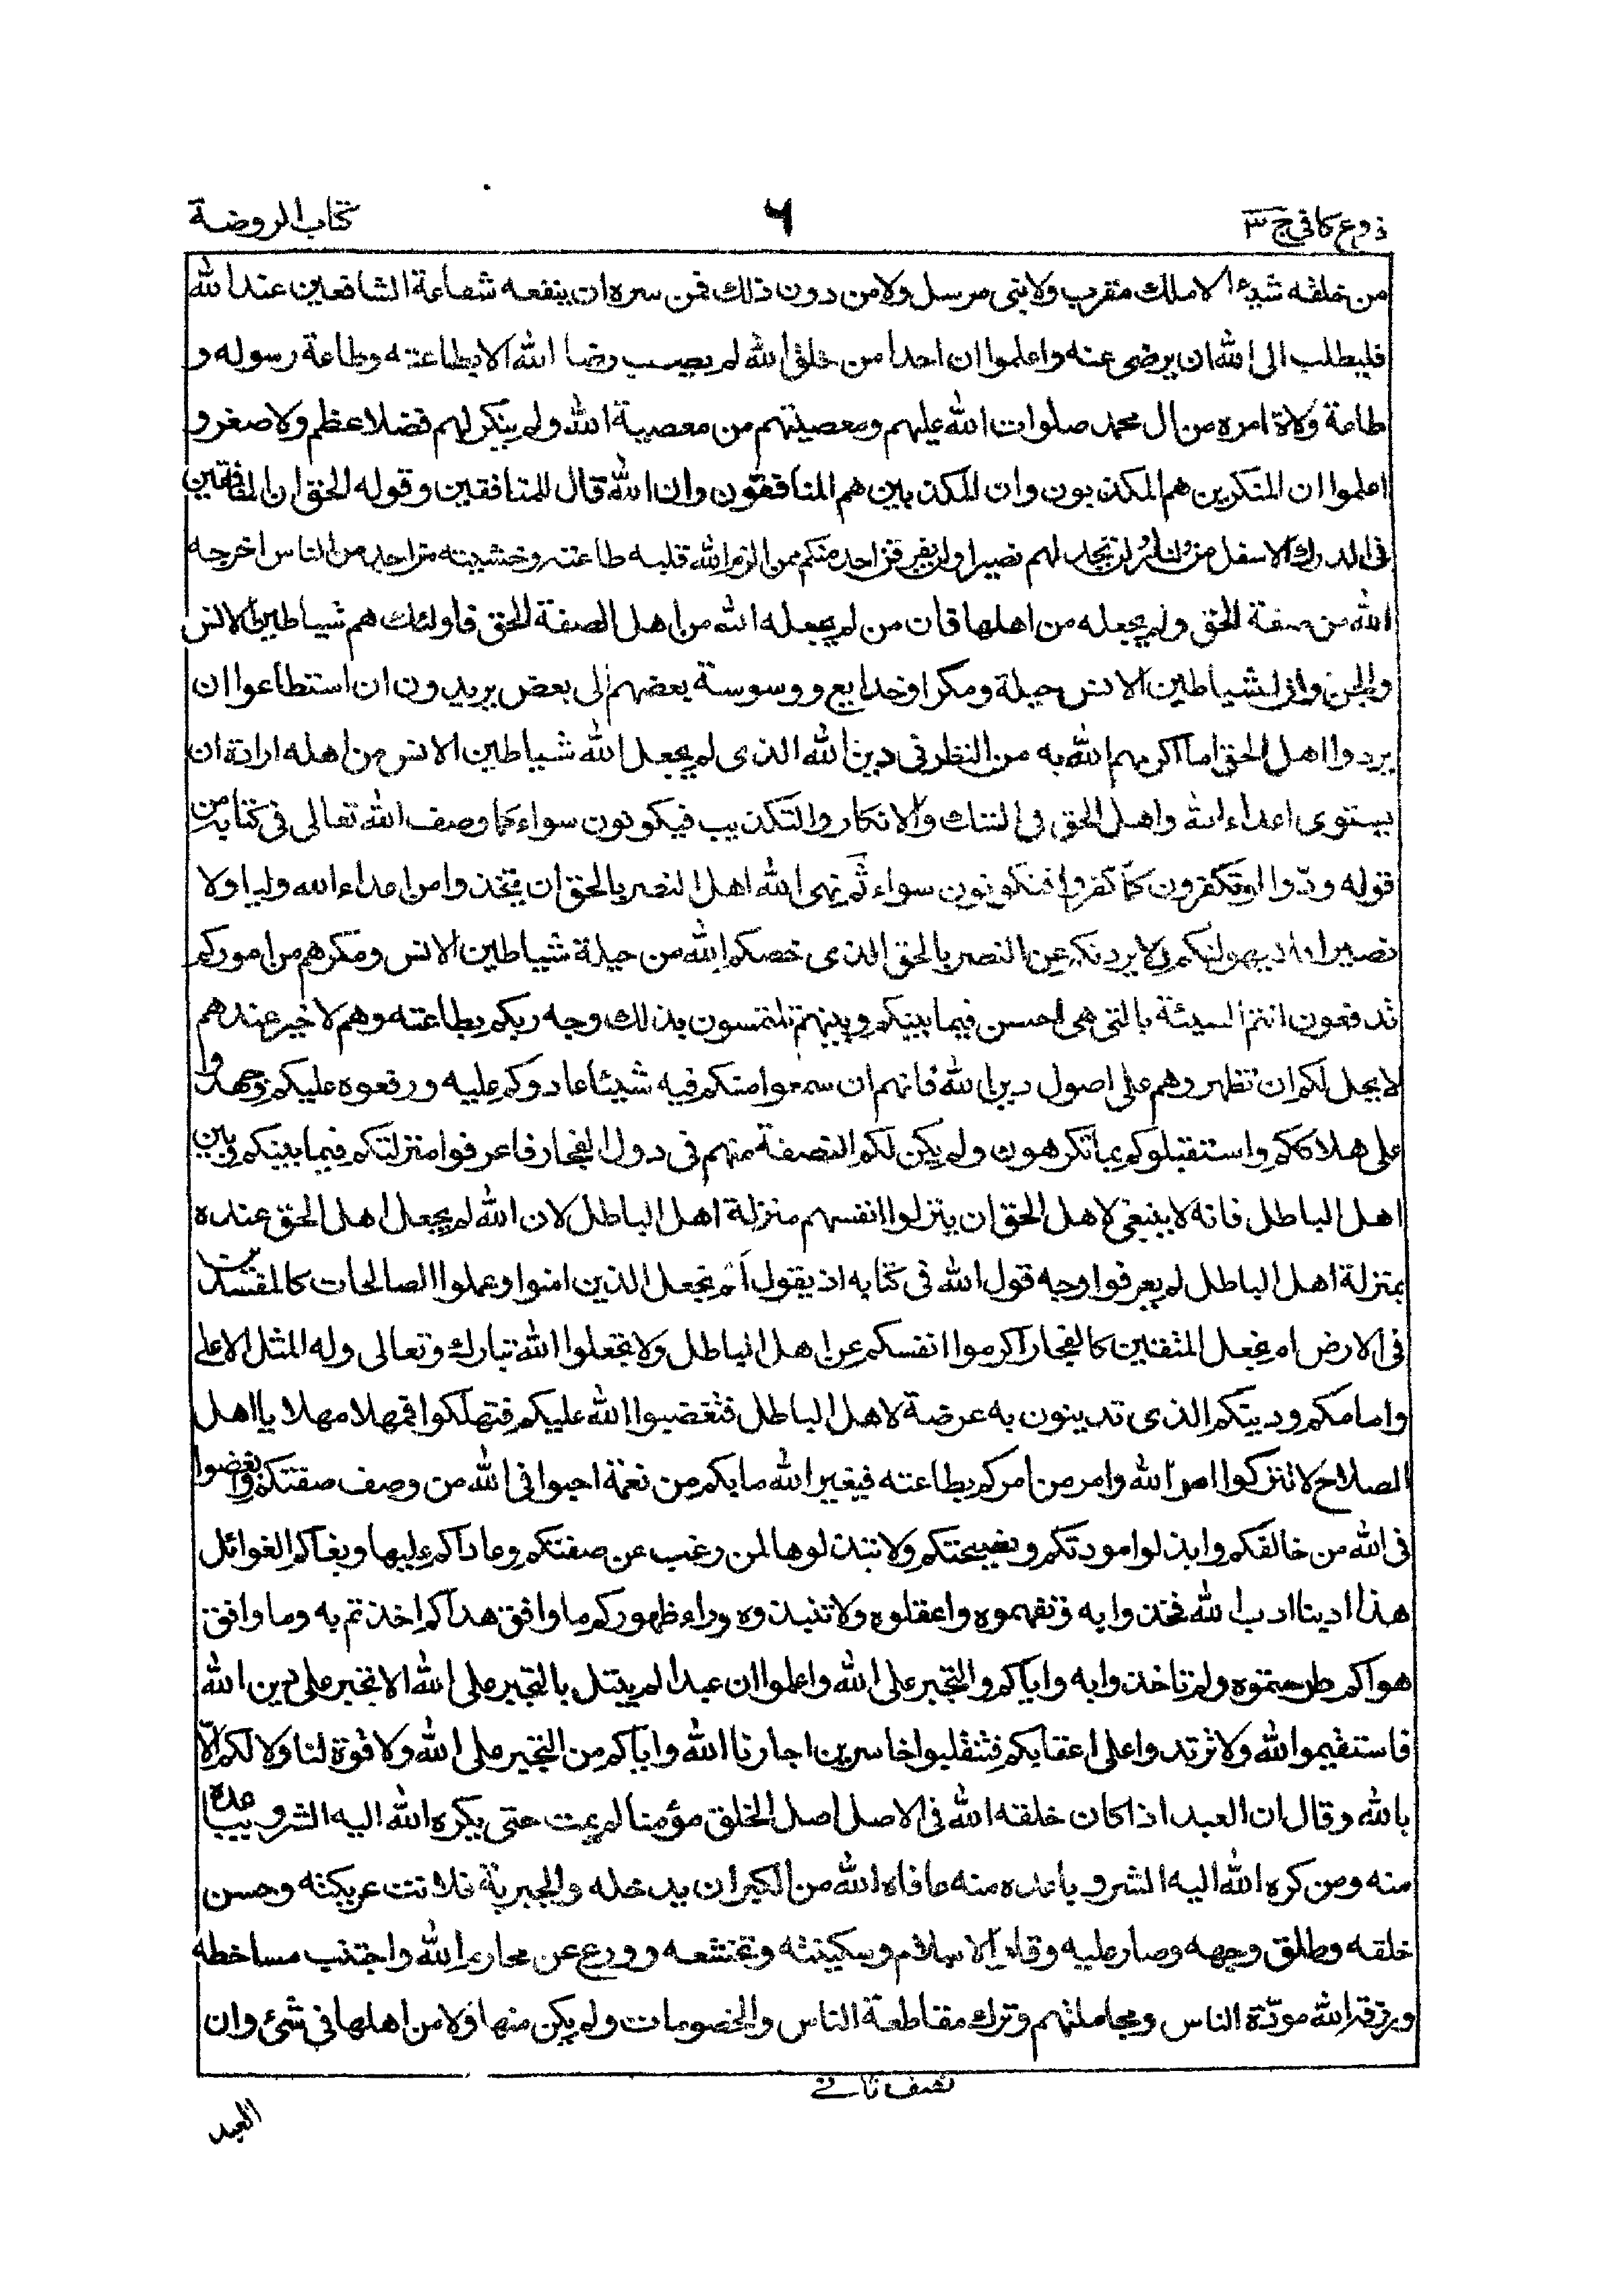 فروع كافي ج ٣
٦
كتاب الروضة
من خلقه شيئا لا ملك مقرب ولا نبي مرسل ولا من دون ذلك فمن سره ان ينفعه شفاعة الشافعين عند الله
فليطلب الى الله ان يرضى عنه واعلموا ان احدا من خلق الله لم يصب رضا الله الا بطاعته وطاعة رسوله و
طاعة ولاة امره من ال محمد صلوات الله عليهم ومعصيتهم من معصية الله ولم ينكر لهم فضلا عظم ولا صغر و
اعلموا ان المنكرين هم المكذبون وان المكذبين هم المنافقون وان الله قال للمنافقين وقوله الحق ان المنافقين
في الدرك الاسفل من النار ولن تجد لهم نصيرا ولا يفرقن احد منكم ممن الزم الله قلبه طاعته وخشيته من احد من الناس اخرجه
الله من صفة الحق ولم يجعله من اهلها فان من لم يجعله الله من اهل الصفة الحق فاولئك هم شياطين الانس
والجن وان لشياطين الانس حيلة ومكرا وخدايع ووسوسة بعضهم الى بعض يريدون ان استطاعوا ان
يردوا اهل الحق اما اكرمهم الله به من النظر في دين الله الذي لم يجعل الله شياطين الانس من اهله ارادة ان
يستوى اعداء الله واهل الحق في الشك والانكار والتكذيب فيكونون سواء كما وصف الله تعالى في كتابه من
قوله ودوا لو تكفرون كما كفروا فتكونون سواء ثم نهى الله اهل النصر بالحق ان يتخذوا من اعداء الله وليا ولا
نصيرا فلا يهولنكم ولا يردنكم عن النصر بالحق الذي خصكم الله من حيلة شياطين الانس ومكرهم من اموركم
تدفعون انتم السيئة بالتي هي احسن فيما بينكم وبينهم تلتمسون بذلك وجه ربكم بطاعته وهم لا خير عندهم
لا يحل لكم ان تظهروهم على اصول دين الله فانهم ان سمعوا منكم فيه شيئا عادوكم عليه ورفعوه عليكم وجهدوا
على هلاككم واستقبلوكم بما تكرهون ولم يكن لكم النصفة منهم في دول الفجار فاعرفوا منزلتكم فيما بينكم وبين
اهل الباطل فانه لا ينبغي لاهل الحق ان ينزلوا انفسهم منزلة اهل الباطل لان الله لم يجعل اهل الحق عنده
بمنزلة اهل الباطل لم يعرفوا وجه قول الله في كتابه اذ يقول ام نجعل الذين امنوا وعملوا الصالحات كالمفسدين
في الارض ام نجعل المتقين كالفجار اكرموا انفسكم عن اهل الباطل ولا تجعلوا الله تبارك وتعالى وله المثل الاعلى
وامامكم ودينكم الذي تدينون به عرضة لاهل الباطل فتغضبوا الله عليكم فتهلكوا فمهلا مهلا يا اهل
الصلاح لا تتركوا امر الله وامر من امركم بطاعته فيغير الله ما بكم من نعمة احبوا في الله من وصف صفتكم وابغضوا
في الله من خالفكم وابذلوا مودتكم ونصيحتكم ولا تبتذلوها لمن رغب عن صفتكم وعاداكم عليها وبغاكم الغوائل
هذا ادبنا ادب الله فخذوا به وتفهموه واعقلوه ولا تنبذوه وراء ظهوركم ما وافق هداكم اخذتم به وما وافق
هواكم طرحتموه ولم تاخذوا به واياكم والتجبر على الله واعلموا ان عبدا لم يبتل بالتجبر على الله الا تجبر على دين الله
فاستقيموا لله ولا ترتدوا على اعقابكم فتنقلبوا خاسرين اجارنا الله واياكم من التجبر على الله ولا قوة لنا ولا لكم الّا
بالله وقال ان العبد اذا كان خلقه الله في الاصل اصل الخلق مؤمنا لم يمت حتى يكره الله اليه الشر ويباعده
منه ومن كره الله اليه الشر وباعده منه عافاه الله من الكبر ان يدخله والجبرية فلانت عريكته وحسن
خلقه وطلق وجهه وصار عليه وقار الاسلام وسكينته وتخشعه وورع عن محارم الله واجتنب مساخطه
ورزقه الله مودّة الناس ومجاملتهم وترك مقاطعة الناس والخصومات ولم يكن منها ولا من اهلها في شئ وان
نصف ثاني
العبد